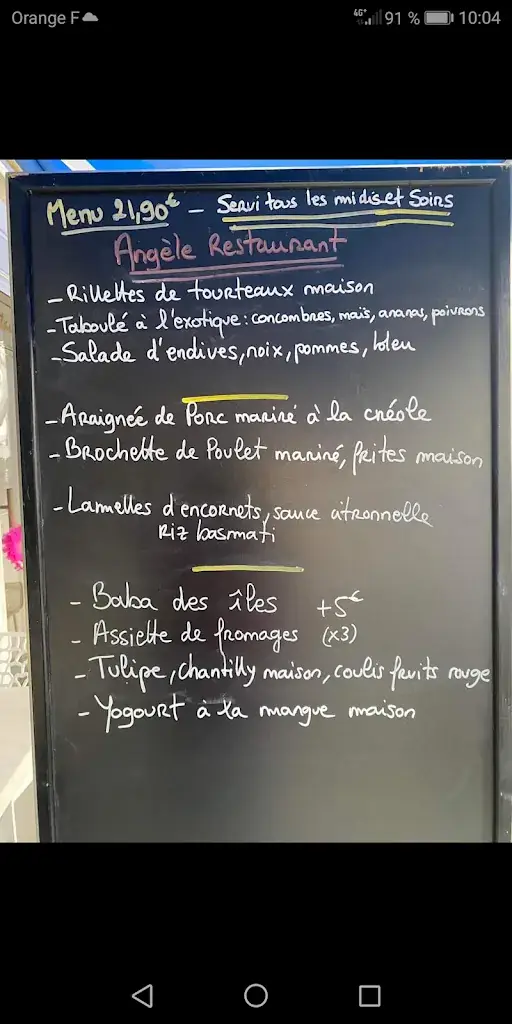 Orange F 4G+ 91 % 10:04
Menu 21,90€ - Servi tous les midis et Soirs
Angèle Restaurant
- Rillettes de tourteaux maison
- Taboulé à l'exotique : concombres, maïs, ananas, poivrons
- Salade d'endives, noix, pommes, bleu
- Araignée de Porc mariné à la créole
- Brochette de Poulet mariné, frites maison
- Lamelles d'encornets, sauce citronnelle
Riz basmati
- Baba des îles +5€
- Assiette de fromages (x3)
- Tulipe, chantilly maison, coulis fruits rouge
- Yogourt à la mangue maison